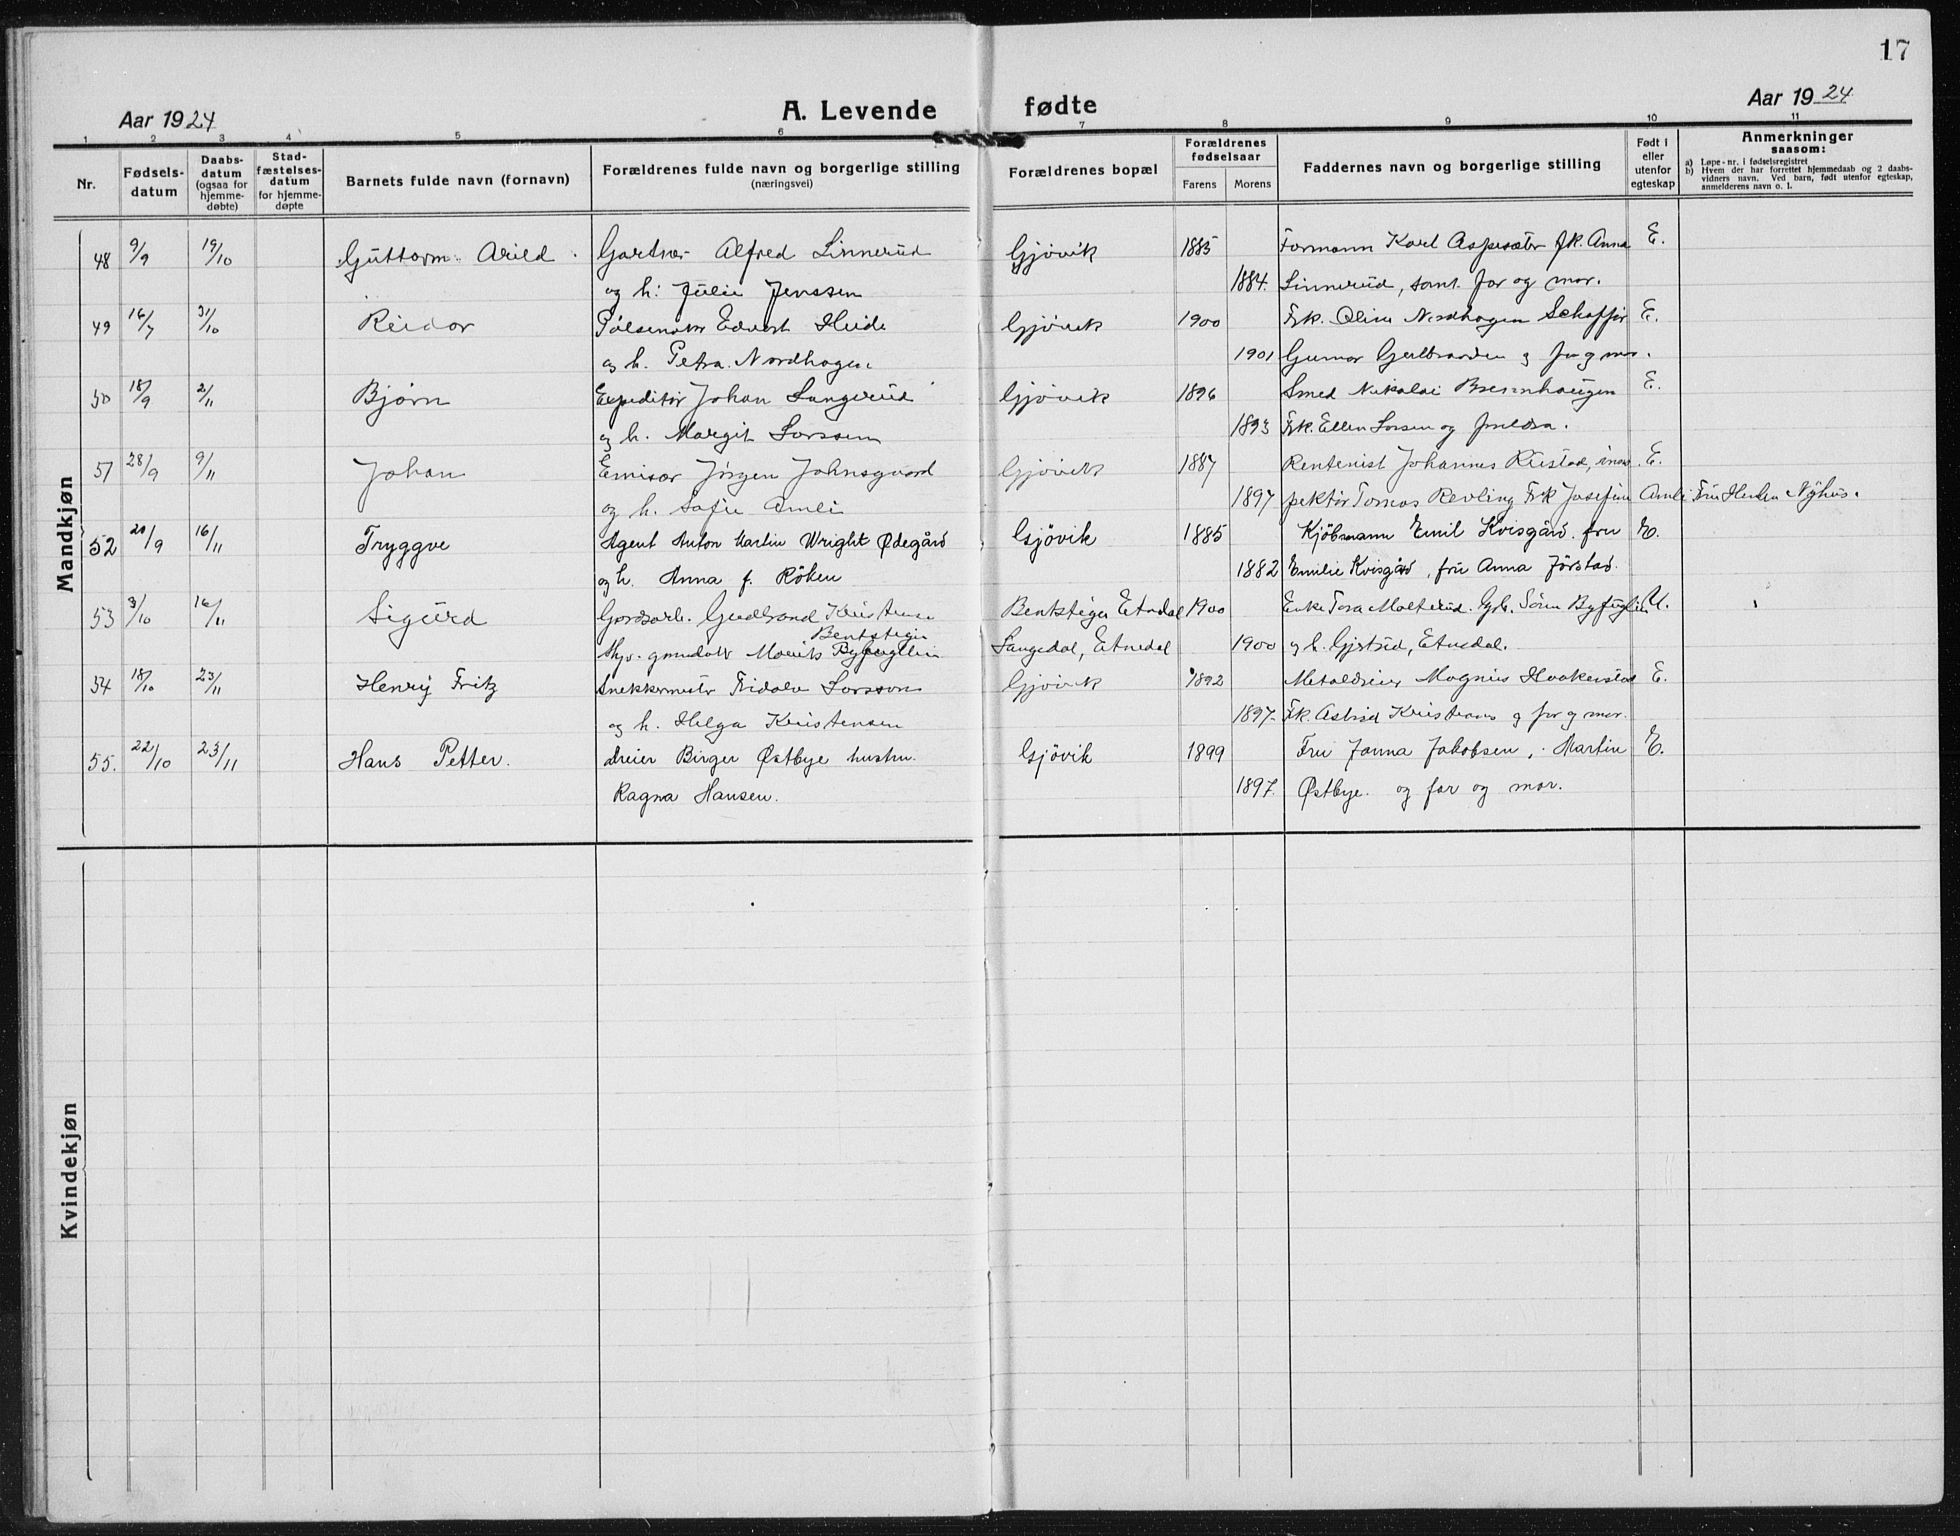 17
Aar 1924 A. Levende fødte Aar 1924
1 2 3 4 5 6 7 8 9 10 11
Nr.
Fødsels-datum
Daabs-datum (ogsaa for hjemme-døbte)
Stad-fæstelses-datum for hjemme-døpte
Barnets fulde navn (fornavn)
Forældrenes fulde navn og borgerlige stilling (næringsvei)
Forældrenes bopæl
Forældrenes fødselsaar
Farens Morens
Faddernes navn og borgerlige stilling
Født i eller utenfor egteskap
Anmerkninger saasom:
a) Løpe-nr. i fødselsregistret
b) Hvem der har forrettet hjemmedaab og 2 daabs-vidners navn. Ved barn, født utenfor egteskap, anmelderens navn o. l.
Mandkjøn
48 9/9 19/10 Guttorm Arild Gartner Alfred Linnerud Gjøvik 1885 Formann Karl Aspesæter fk. Anna E.
og h: Julie Jenssen 1884. Linnerud, samt far og mor.
49 16/7 31/10 Reidar Pølsemaker Edvart Heide Gjøvik 1900 Frk. Oline Nordhagen E.
og h. Petra Nordhagen 1901 Gunnar og far og mor.
50 18/9 2/11 Bjørn Expeditør Johan Langerud Gjøvik 1896 Smed Nikolai E.
og h. Margit Larssen 1893 Frk. Ellen Larsen og foreldra.
51 28/9 9/11 Johan Emisær Jørgen Johnsgaard Gjøvik 1887 Rentenist Johannes Rustad, ins- E.
og h. Sofie Amlie 1897 pektør Tomas Revling Frk Josefine Amli Fru Helen Nyhus.
52 20/9 16/11 Tryggve Agent Anton Martin Wright Ødegård Gjøvik 1885 Kjøbmann Emil Kvisgård. fru E.
og h. Anna f. Røken 1882 Emilie Kvisgård, fru Anna Jørstad.
53 3/10 16/11 Sigurd Gårdsarb. Gudbrand Kristense Bentstegen Etnedal 1900 Enke Tora Molterud. Grb. Sören Byfuglien U.
Bentstegen
Marit Byfuglien Langedal, Etnedal 1900 og h. Gjertrud, Etnedal.
54 18/10 23/11 Henry Fritz Snekkermester Fridolv Larsson Gjøvik 1892 Metaldreier Magnus Haakenstad E.
og h. Helga Kristensen 1897 Fk. Astrid Kristians og far og mor.
55. 22/10 23/11 Hans Petter. dreier Birger Østbye hustru. Gjøvik 1899 Fru Janna Jakobsen, Martin E.
Ragna Hansen. 1897 Østbye. og far og mor.
Kvindekjøn